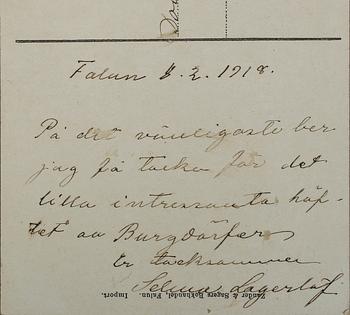 Falun 8.2.1918.
På det vänligaste ber
jag få tacka för det
lilla intressanta häf-
tet av Burgdörfer
Er tacksamma
Selma Lagerlöf
Zander & Sagers Bokhandel, Falun. Import.